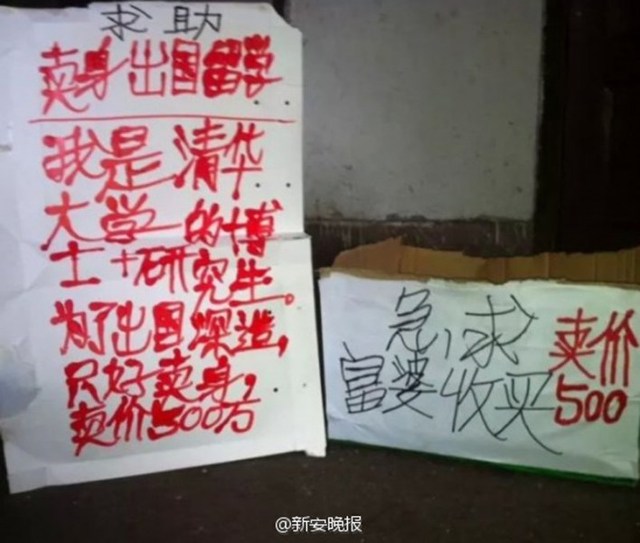 求助
卖身出国留学
我是清华
大学的博
士+研究生。
为了出国深造,
只好卖身,
卖价500万
急,求
富婆收买
卖价
500
@新安晚报